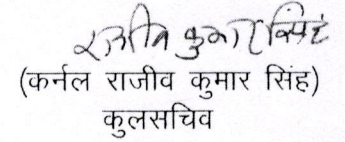 राजीव कुमार सिंह
(कर्नल राजीव कुमार सिंह)
कुलसचिव